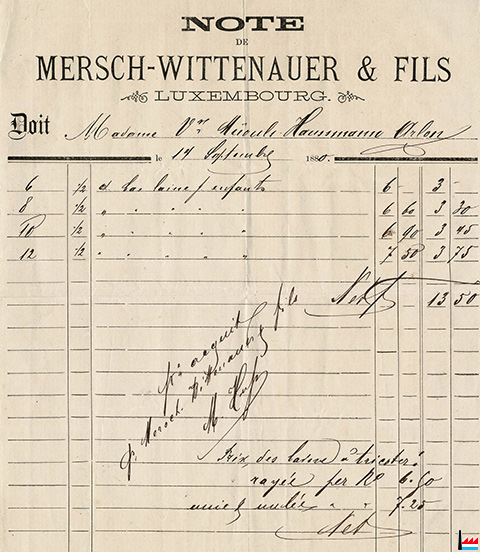 NOTE
DE
MERSCH-WITTENAUER & FILS
LUXEMBOURG.
Doit Madame Vve Hausmann Arlon
le 17 Septembre 1880.
6 1/2 d bas laine f enfants 6 - 3 -
8 1/2 " " " " " 6 60 3 30
10 1/2 " " " " " 6 90 3 45
12 1/2 " " " " " 7 50 3 75
Net f 13 50
pr acquit
p. Mersch-Wittenauer & fils
Prix des laines à tricoter:
rayée per Ko 6.50
unie & " " 7.25
Net